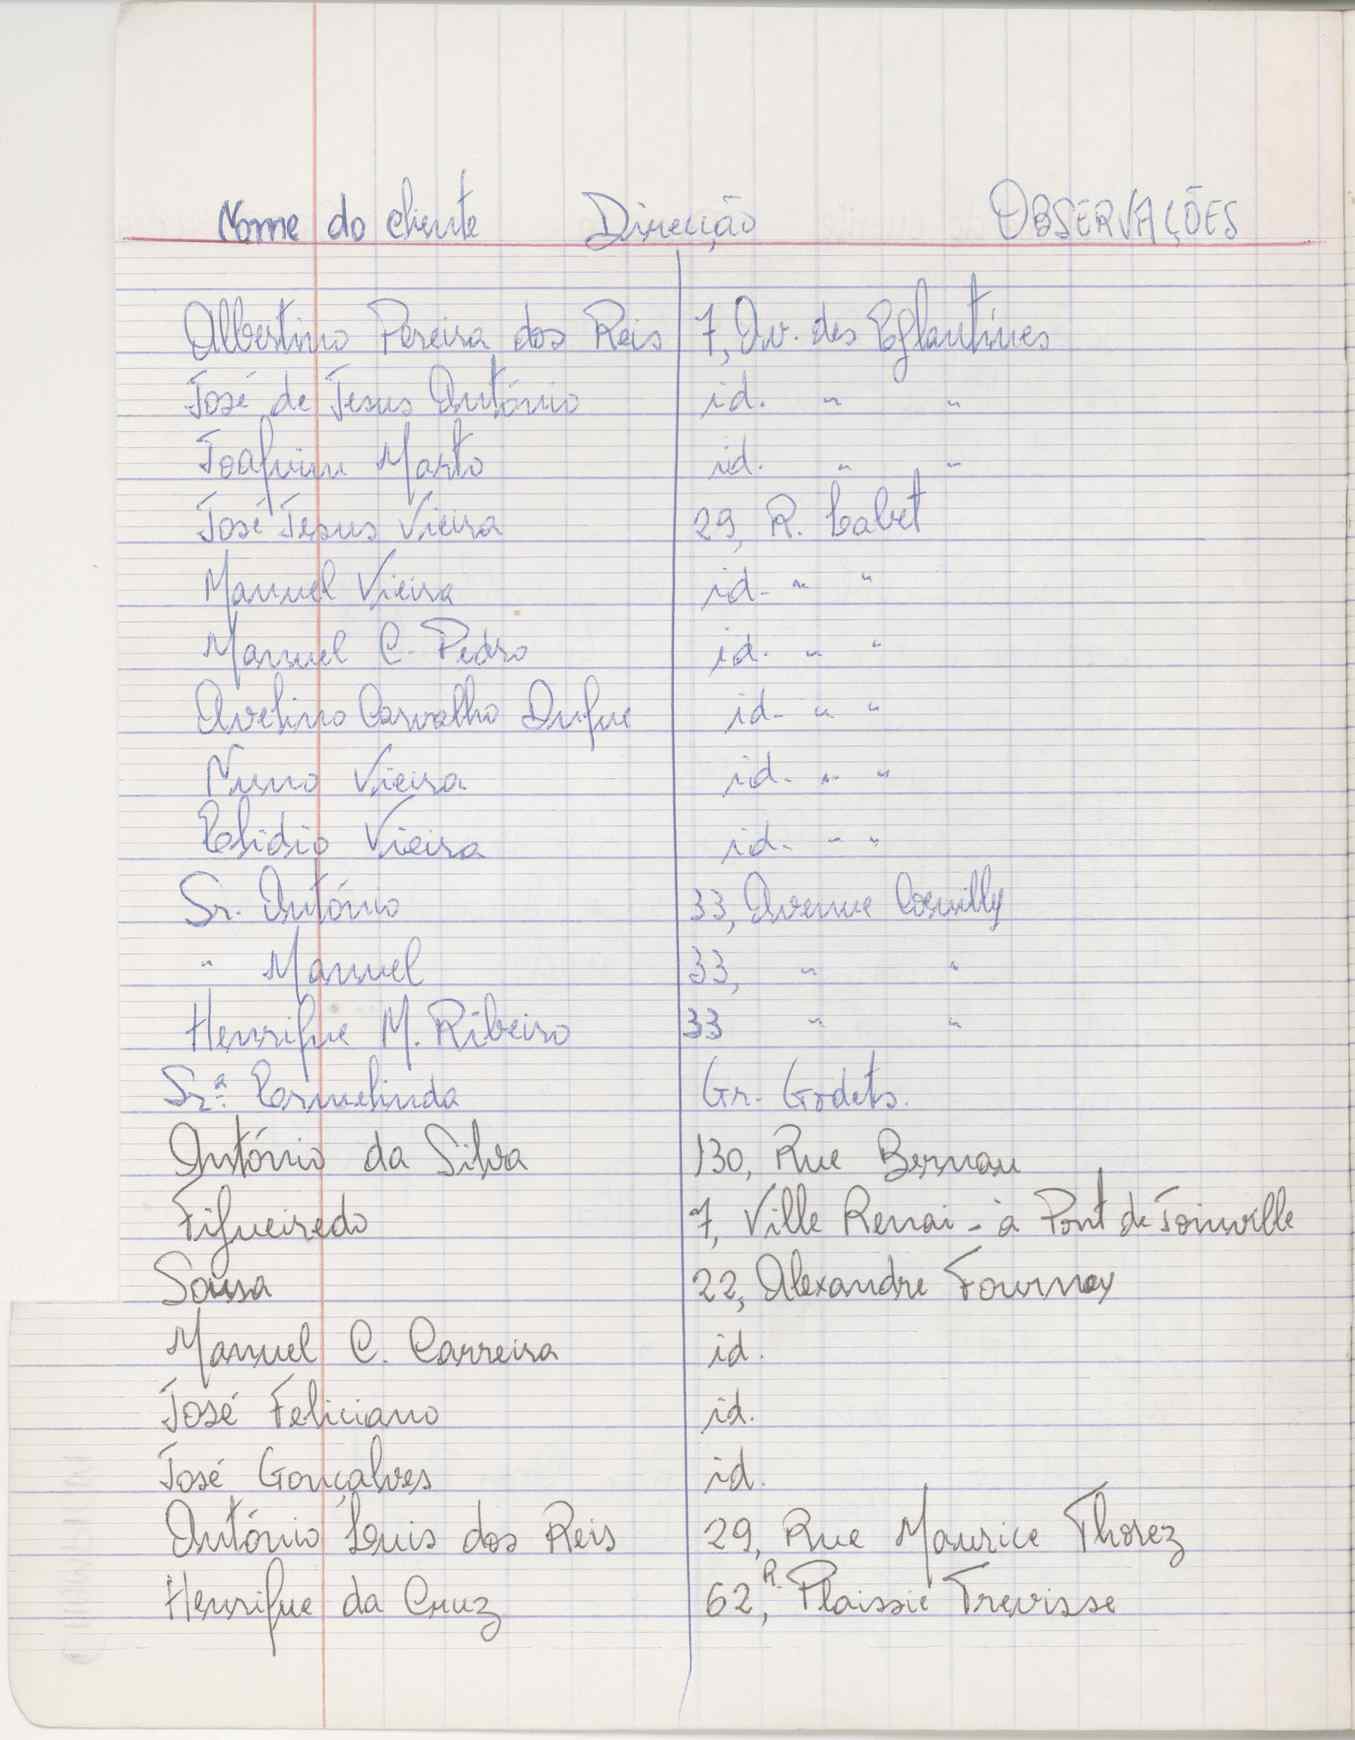 Nome do cliente Direcção OBSERVAÇÕES
Albertino Pereira dos Reis 7, Av. des Eglantines
José de Jesus António id. " "
Joaquim Marto id. " "
José Jesus Vieira 29, R. Labet
Manuel Vieira id- " "
Manuel C. Pedro id. " "
Avelino Carvalho Duque id- " "
Nuno Vieira id- " "
Elidio Vieira id- " "
Sr. António 33, Avenue Coeuilly
" Manuel 33, " "
Henrique M. Ribeiro 33 " "
Srª. Ermelinda Gr. Godets.
António da Silva 130, Rue Bernau
Figueiredo 7, Ville Renai - à Pont de Joinville
Sousa 22, Alexandre Fourney
Manuel C. Carreira id.
José Feliciano id.
José Gonçalves id.
António Luis dos Reis 29, Rue Maurice Thorez
Henrique da Cruz 62, R. Plaissie Trevisse